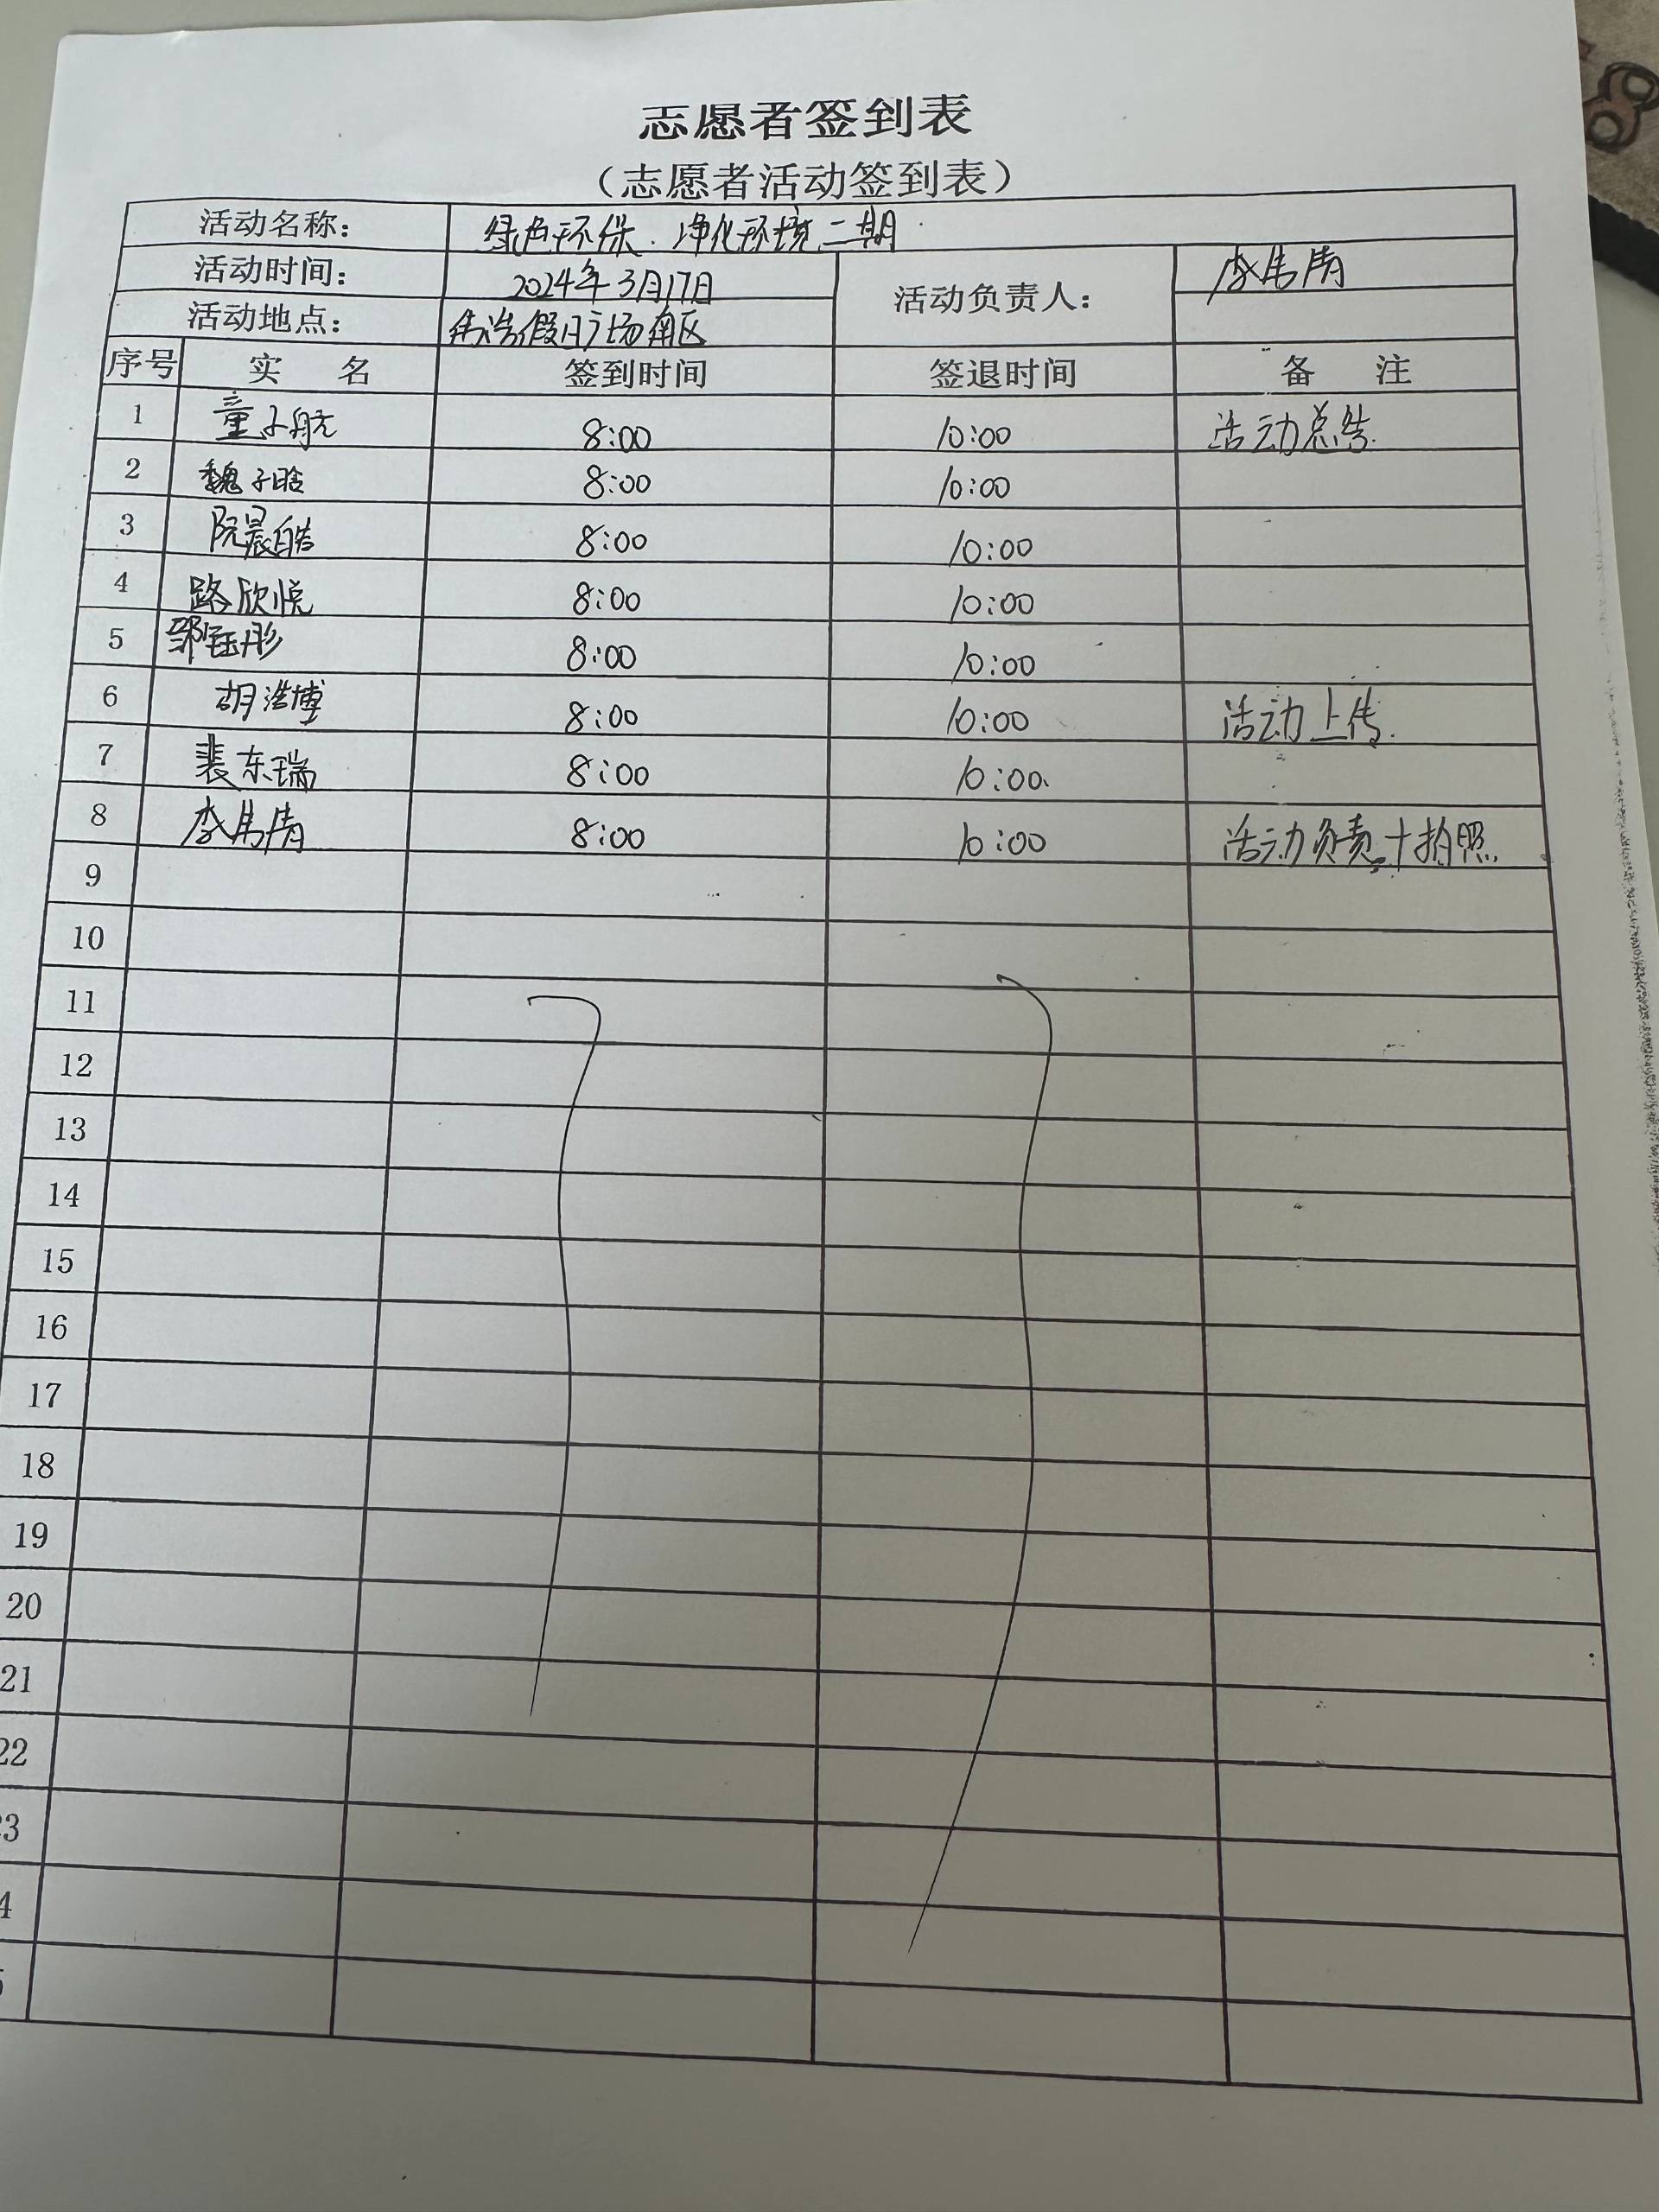 志愿者签到表
（志愿者活动签到表）
活动名称： 绿色环保.净化环境二期
活动时间： 2024年3月17日 活动负责人： 李伟清
活动地点： 伟浩假日广场南区
序号 实 名 签到时间 签退时间 备 注
1 童子航 8:00 10:00 活动总结.
2 魏子晗 8:00 10:00
3 阮晨皓 8:00 10:00
4 路欣悦 8:00 10:00
5 邹钰彤 8:00 10:00
6 胡浩博 8:00 10:00 活动上传.
7 裴东瑞 8:00 10:00
8 李伟清 8:00 10:00 活动负责+拍照.
9
10
11
12
13
14
15
16
17
18
19
20
21
22
23
4
5